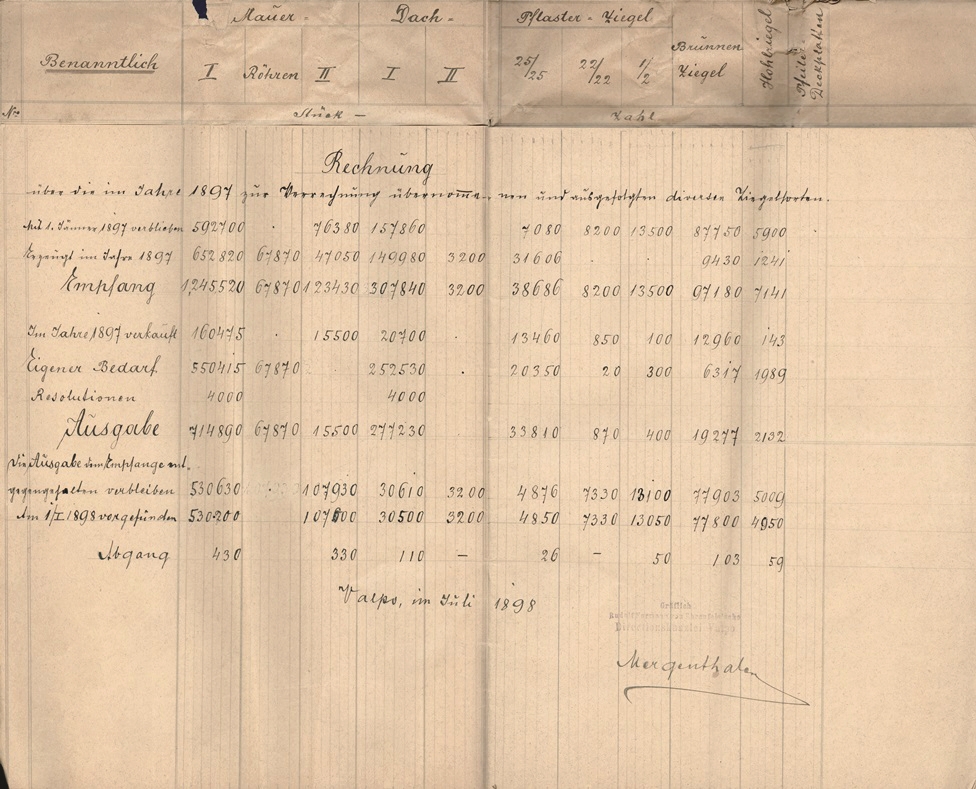 Mauer - Dach - Pflaster - Ziegel
Benanntlich I Röhren II I II 25/25 22/22 1/2 Brunnen Ziegel Hohlziegel Pfeiler Deckplatten
Nro Stück - Zahl
Rechnung
über die im Jahre 1897 zur Verrechnung übernomme- nen und ausgefolgten diversen Ziegelsorten.
Mit 1. Jänner 1897 verblieben 592700 . 76380 157860 7080 8200 13500 87750 5900
Erzeugt im Jahre 1897 652820 67870 47050 149980 3200 31606 . . 9430 1241
Empfang 1,245520 67870 123430 307840 3200 38686 8200 13500 97180 7141
Im Jahre 1897 verkauft 160475 . 15500 20700 13460 850 100 12960 143
Eigener Bedarf 550415 67870 . 252530 . 20350 20 300 6317 1989
Resolutionen 4000 4000
Ausgabe 714890 67870 15500 277230 33810 870 400 19277 2132
Die Ausgabe dem Empfange ent-
gegengehalten verbleiben 530630 107930 30610 3200 4876 7330 13100 77903 5009
Am 1/I 1898 vorgefunden 530200 107600 30500 3200 4850 7330 13050 77800 4950
Abgang 430 330 110 - 26 - 50 103 59
Valpo, im Juli 1898
Gräflich
Mergenthaler